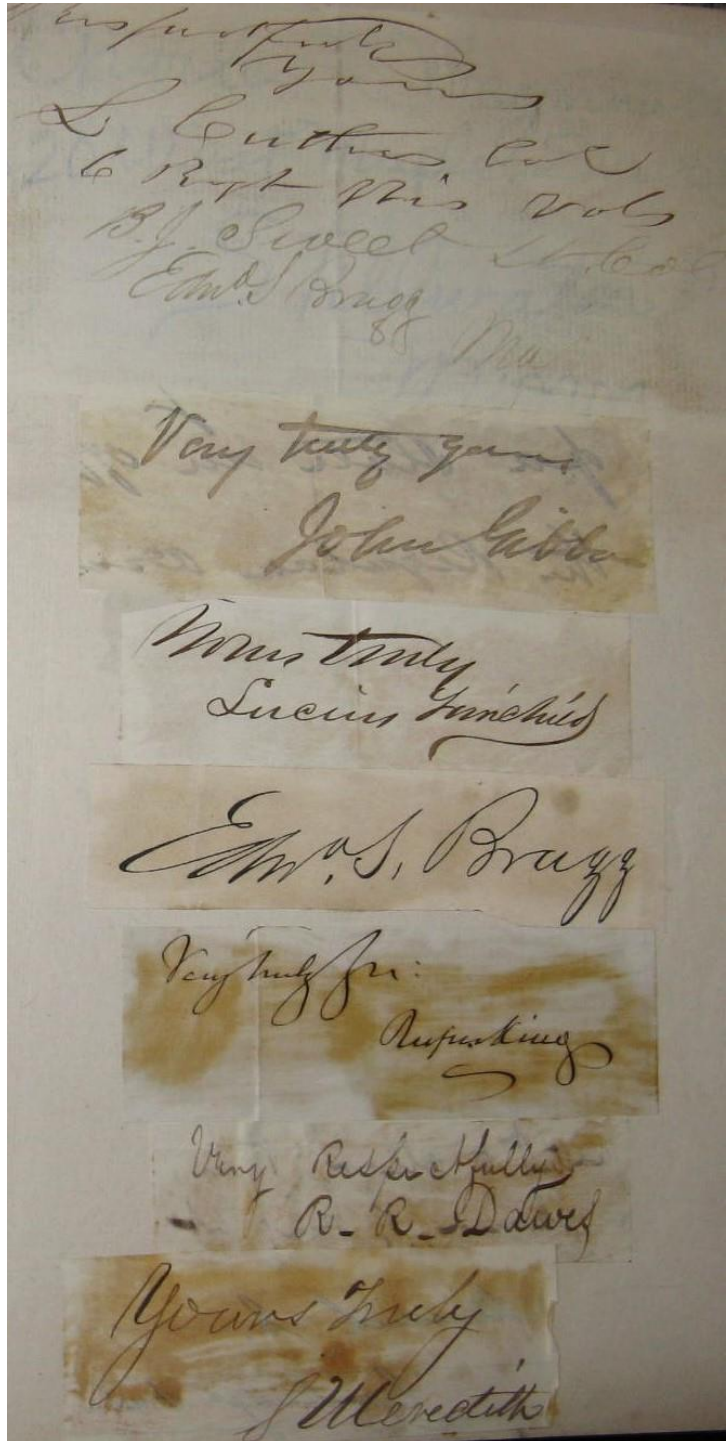 Respectfully
Yours
L Cutler Col
6 Regt Wis Vols
B.J. Sweet Lt. Col
Edwd. S Bragg
Maj
Very truly yours
John Gibbon
Yours truly
Lucius Fairchild
Edwd. S. Bragg
Very truly Yrs:
Rufus King
Very Respectfully
R. R. Dawes
Yours Truly
S Meredith